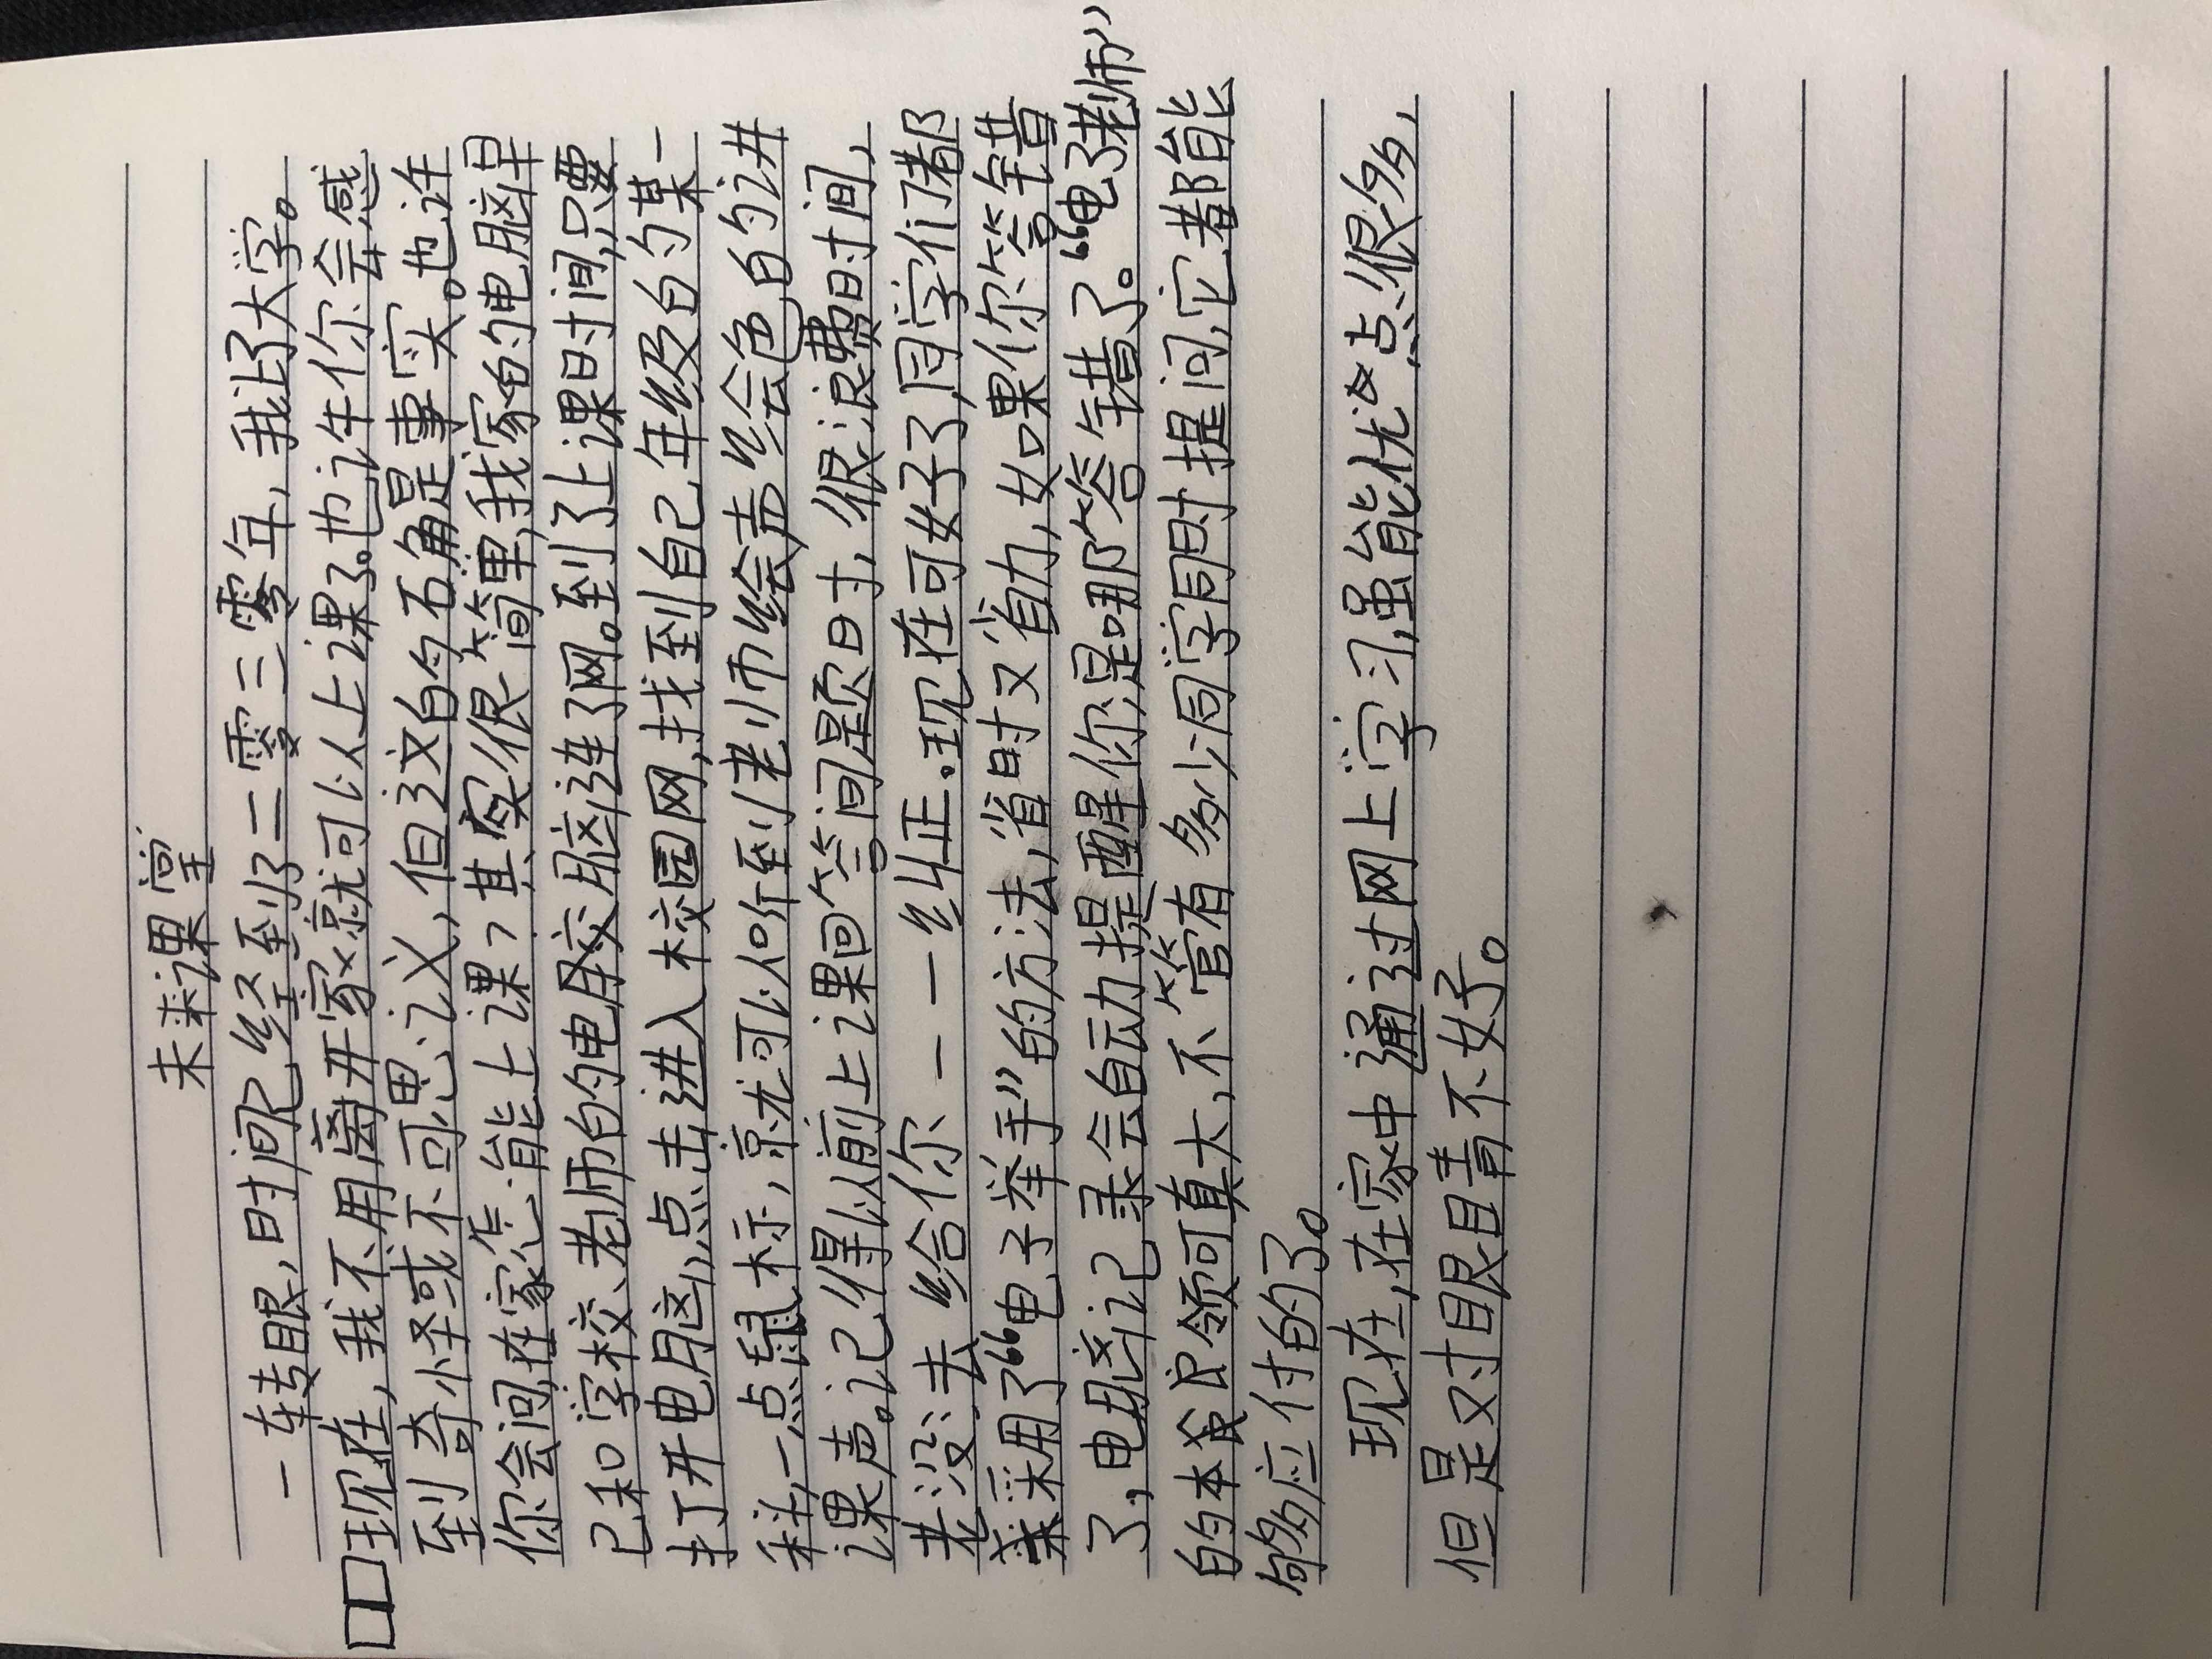 未来课堂
一转眼,时间已经到了二零三零年,我上了大学。
现在,我不用离开家就可以上课了。也许你会感
到奇怪或不可思议,但这的的确确是事实。也许
你会问,在家怎能上课?其实很简单,我家的电脑早
已和学校、老师的电脑连了网。到了上课时间,只要
打开电脑,点击进入校园网,找到自己年级的某一
科,一点鼠标,就可以听到老师绘声绘色的讲
课声。记得以前上课回答问题时,很浪费时间,
老没法给你一一纠正.现在可好了,同学们都
采用了“电子举手”的方法,省时又省力,如果你答错
了,电脑记录会自动提醒你是哪答错了。“电子老师”
的本领可真大,不管有多少同学同时提问,它都能
够应付的了。
现在,在家中通过网上学习,虽能优点很多,
但是对眼睛不好。